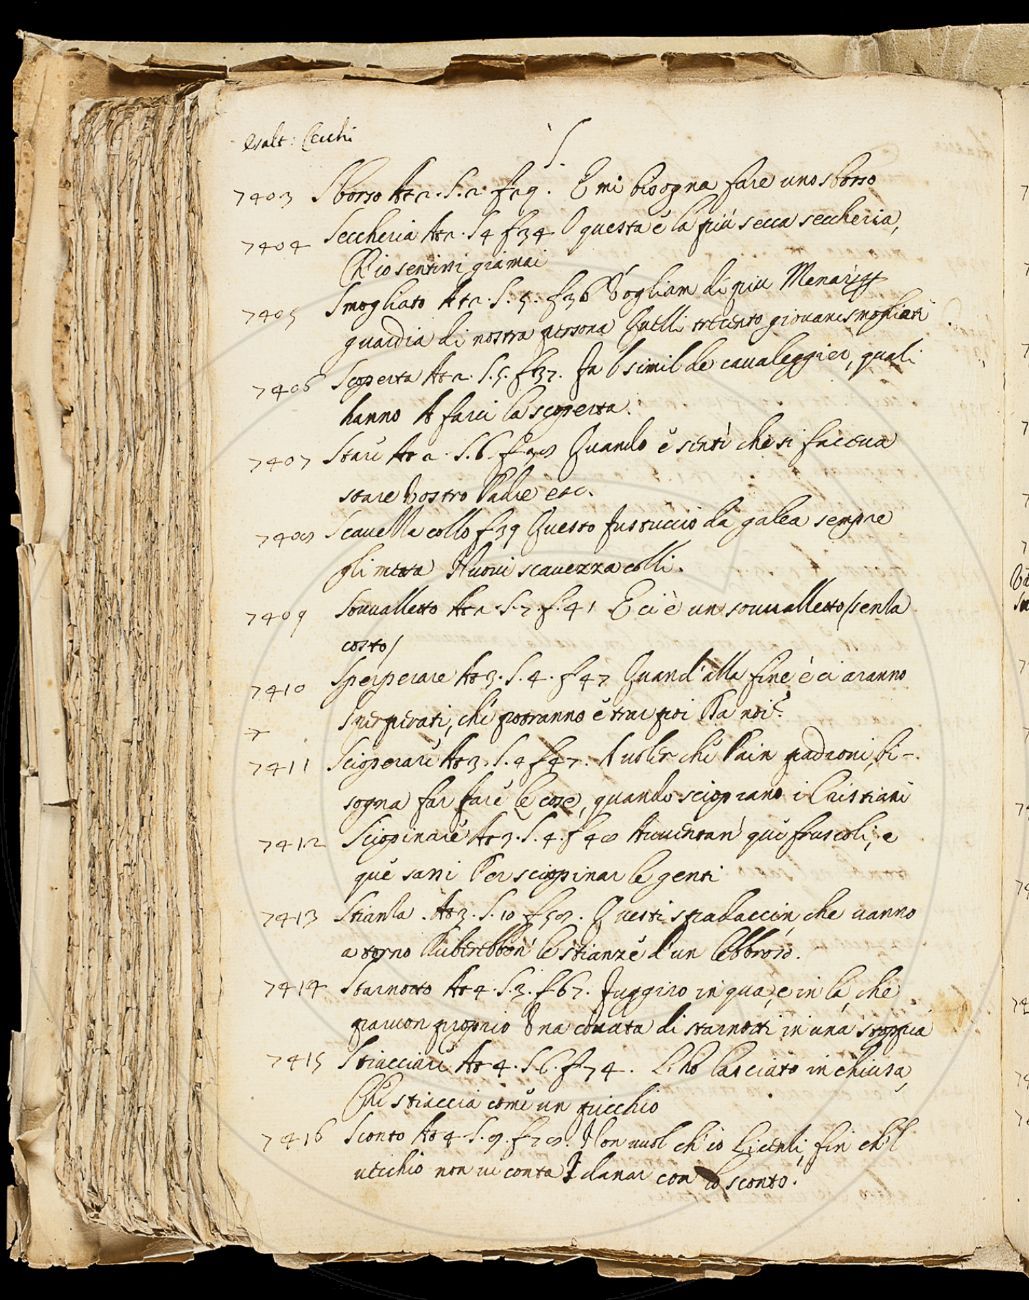 Esalt: Cecchi
S.
7403 Sborso At 2. S. 2. f 29. E mi bisogna fare uno sborso
7404 Seccheria At 2. S 4 f 34 O questa è la più secca seccheria,
Ch'io sentissi giamai
7405 Smogliato At 2. S. 5. f 36 Vogliam di più
guardia di nostra persona Quelli trecento giovani smogliati
7406 Scoperta At 2. S. 5. f 37. simil de cavaleggier, quali
hanno A farci la scoperta.
7407 Stare At 2. S. 6. f 38 Quando e sentì che si faceva
stare Vostro Padre etc.
7408 Scavezza collo f 39 Questo fustuccio da galea sempre
gli metta Nuovi scavezza colli.
7409 Sovvalletto At 2. S. 7. f. 41 E ci è un sovvalletto (senza
costo)
7410 Sperperare At 3. S. 4. f 47 Quand' alla fine e ci aranno
Sperperati, che potranno e trar poi Da noi?
7411 Scioperare At 3. S. 4 f 47. A voler che Pain padroni, bi-
sogna far fare le cose, quando scioprano i Cristiani
7412 Sciopinare At 3. S. 4. f 48 que fruscoli, e
que sassi Per sciopinar le genti
7413 Stianza. At 3. S. 10 f 58. Questi spadaccin che vanno
a torno Ruberebbon' le stianze d'un lebbroso.
7414 Starnotto At 4. S. 3. f 67. Fuggiro in qua, e in là che
parvon proprio Una covata di starnotti in una stoppia
7415 Stiacciare At 4. S 6. f 74. L'ho lasciato in chiusa,
Che stiaccia come un picchio
7416 Sconto At 4. S. 9. f 78. Non vuol ch'io licenzi, fin ch'l
vecchio non vi conta I danar con lo sconto.